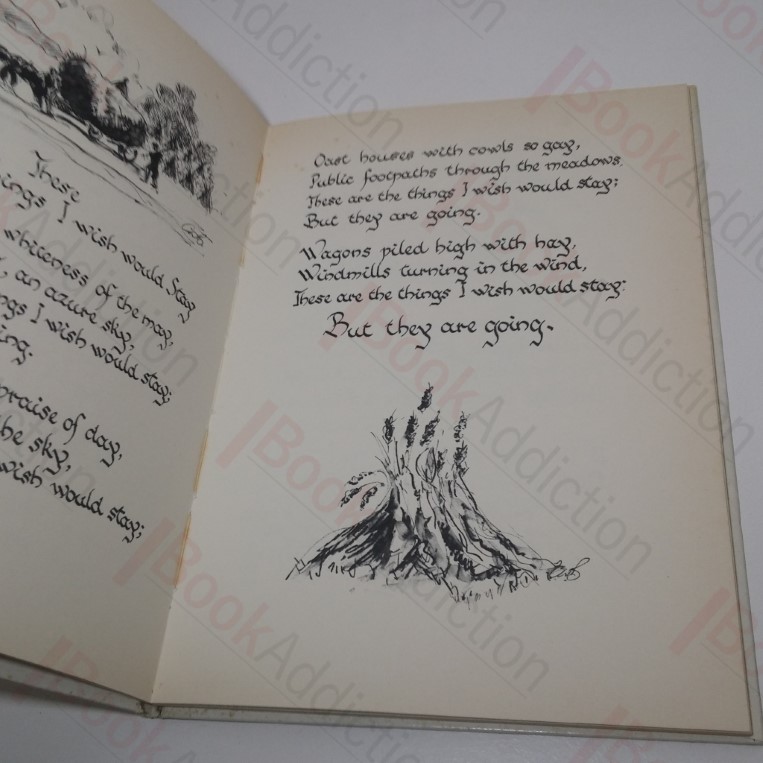 These
ings I wish would Stay
whiteness of the may,
, an azure sky,
ngs I wish would stay;
ing.
praise of day,
he sky,
wish would stay;
Oast houses with cowls so gay,
Public footpaths through the meadows,
These are the things I wish would stay;
But they are going.
Wagons piled high with hay,
Windmills turning in the wind,
These are the things I wish would stay:
But they are going.
BookAddiction